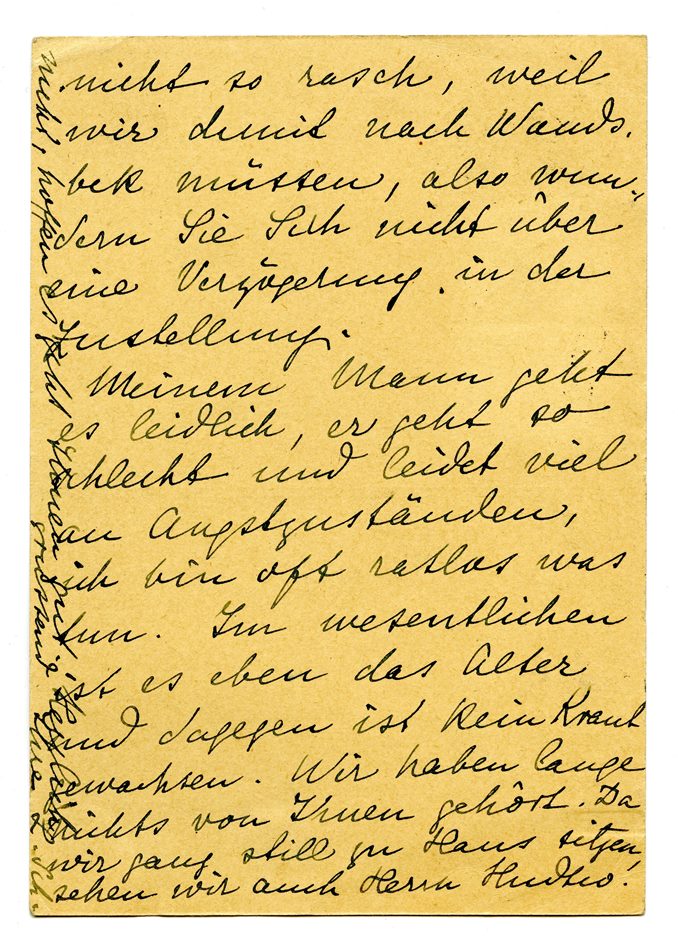 nicht so rasch, weil
wir damit nach Wands-
bek müssen, also wun-
dern Sie Sich nicht über
eine Verzögerung in der
Zustellung.
Meinem Mann geht
es leidlich, er geht so
schlecht und leidet viel
an Angstzuständen,
ich bin oft ratlos was
tun. Im wesentlichen
ist es eben das Alter
und dagegen ist kein Kraut
gewachsen. Wir haben lange
nichts von Ihnen gehört. Da
wir ganz still zu Haus sitzen,
sehen wir auch Herrn
nicht, hoffen es geht Ihnen gut! Herzlich
grüssend Ihre